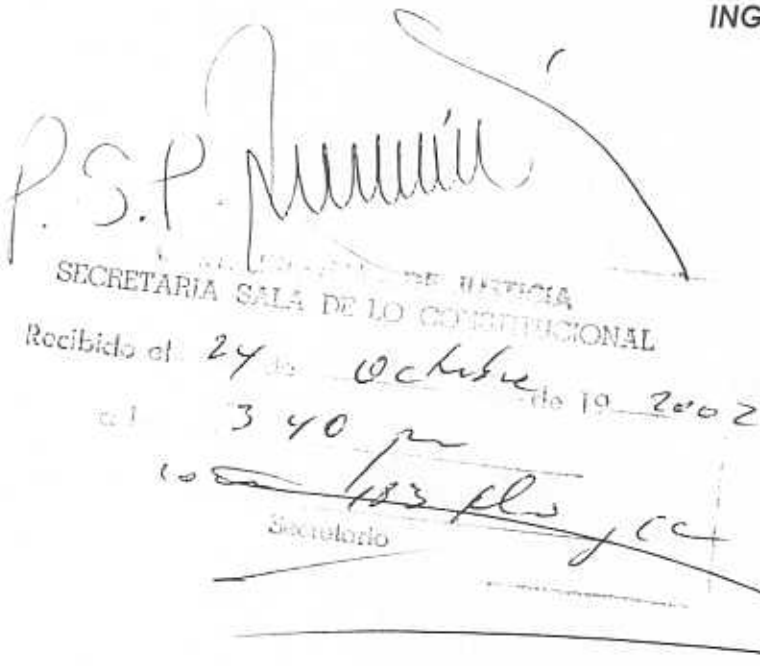 ING
P. S. P.
DE JUSTICIA
SECRETARIA SALA DE LO CONSTITUCIONAL
Recibido el 24 de Octubre de 19 2002
a l 3 40 pm
183 fls y cc
Secretario